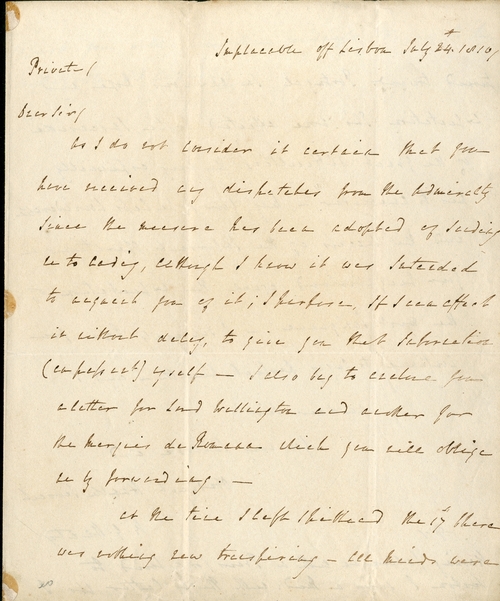 Implacable off Lisbon July 24th. 1810/
Private/
Dear Sir/
As I do not consider it certain that you
have received any dispatches from the Admiralty
since the measure has been adopted of sending
me to Cadiz, although I know it was intended
to acquaint you of it; I purpose, if I can effect
it without delay, to give you that information
(en passant) myself — I also beg to enclose you
a letter for Lord Wellington and another for
the Marquis de Romana which you will oblige
me by forwarding. —
At the time I left Spithead the 17th there
was nothing new transpiring — All minds were